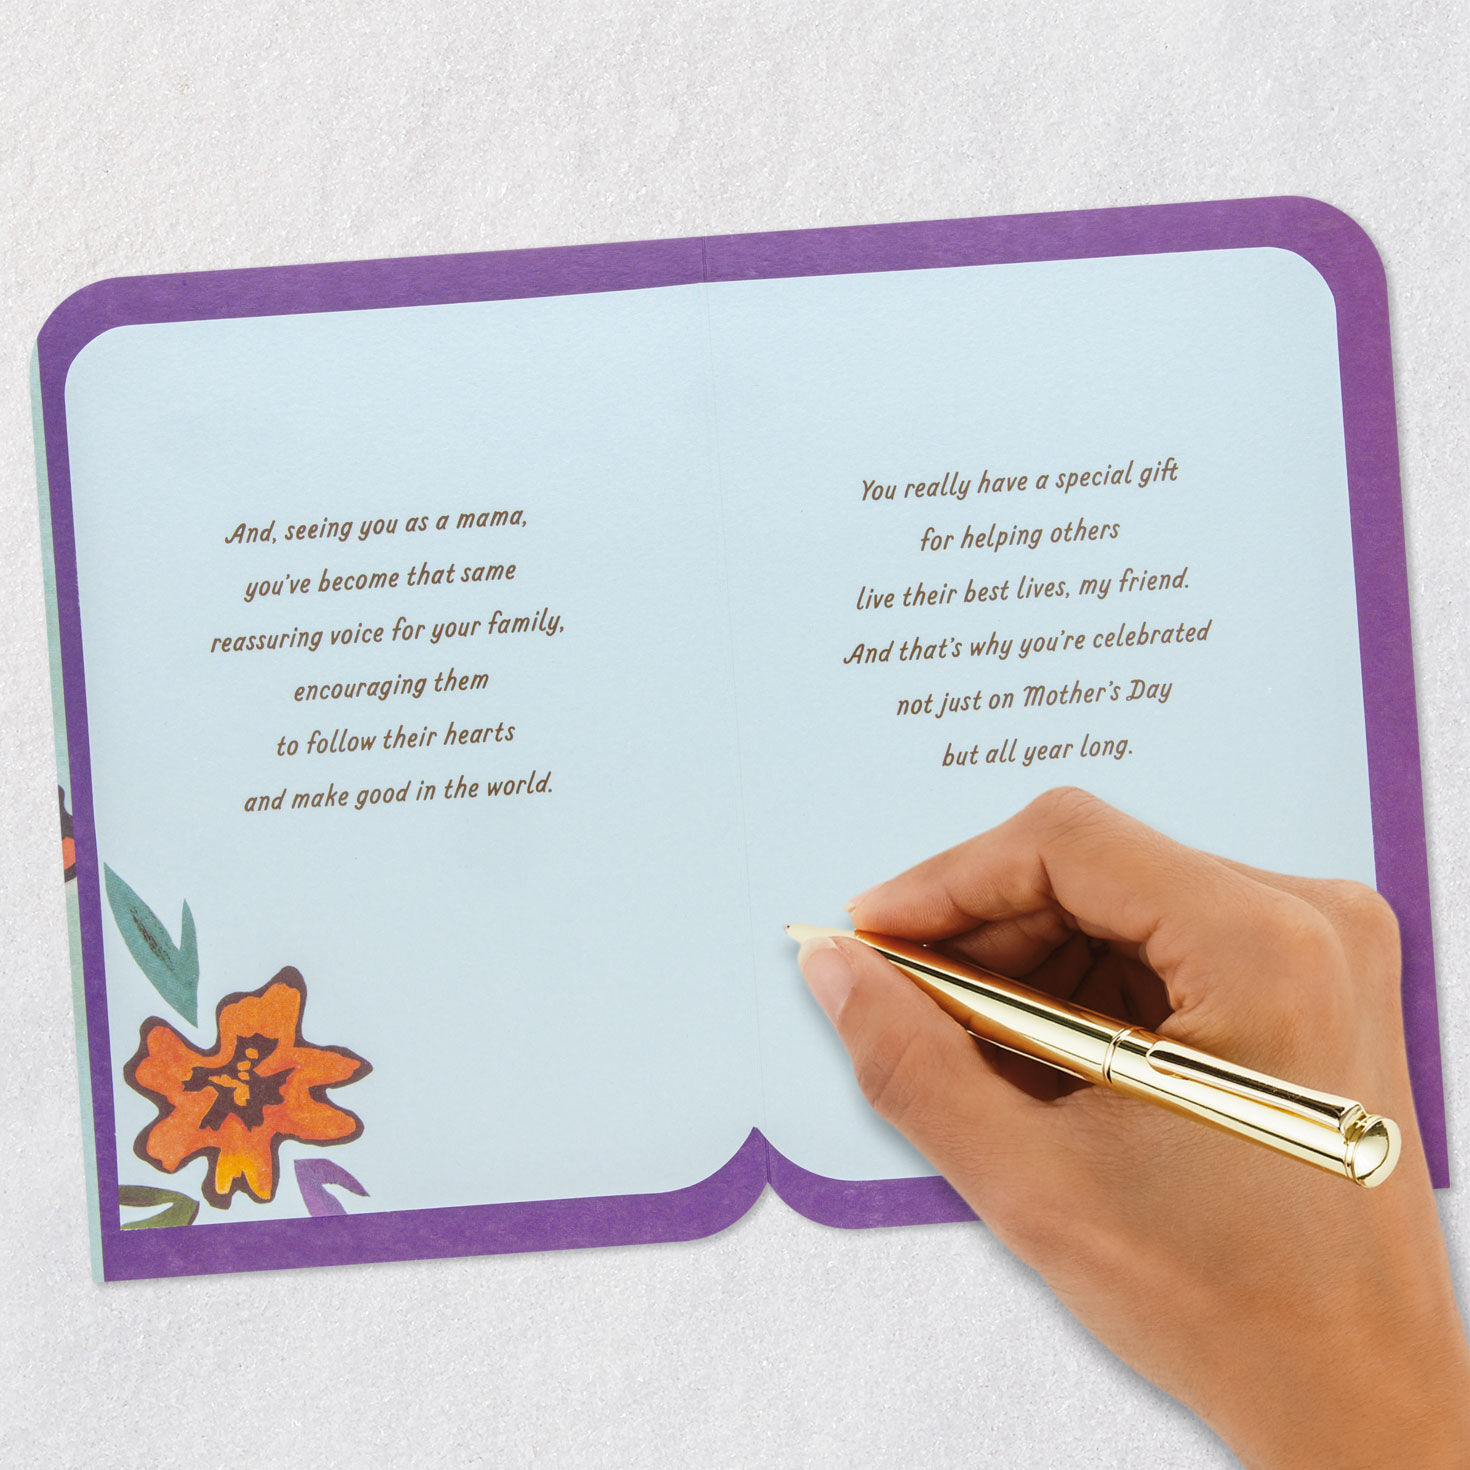 And, seeing you as a mama,
you've become that same
reassuring voice for your family,
encouraging them
to follow their hearts
and make good in the world.
You really have a special gift
for helping others
live their best lives, my friend.
And that's why you're celebrated
not just on Mother's Day
but all year long.